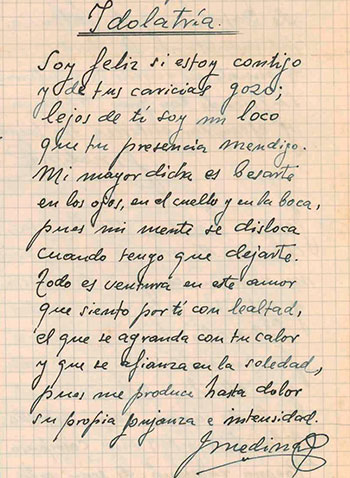 Idolatría.
Soy feliz si estoy contigo
y de tus caricias gozo;
lejos de tí soy un loco
que tu presencia mendigo.
Mi mayor dicha es besarte
en los ojos, en el cuello y en la boca,
pues mi mente se disloca
cuando tengo que dejarte.
Todo es ventura en este amor
que siento por tí con lealtad,
el que se agranda con tu calor
y que se afianza en la soledad,
pues me produce hasta dolor
su propia pujanza e intensidad.
Jmedina